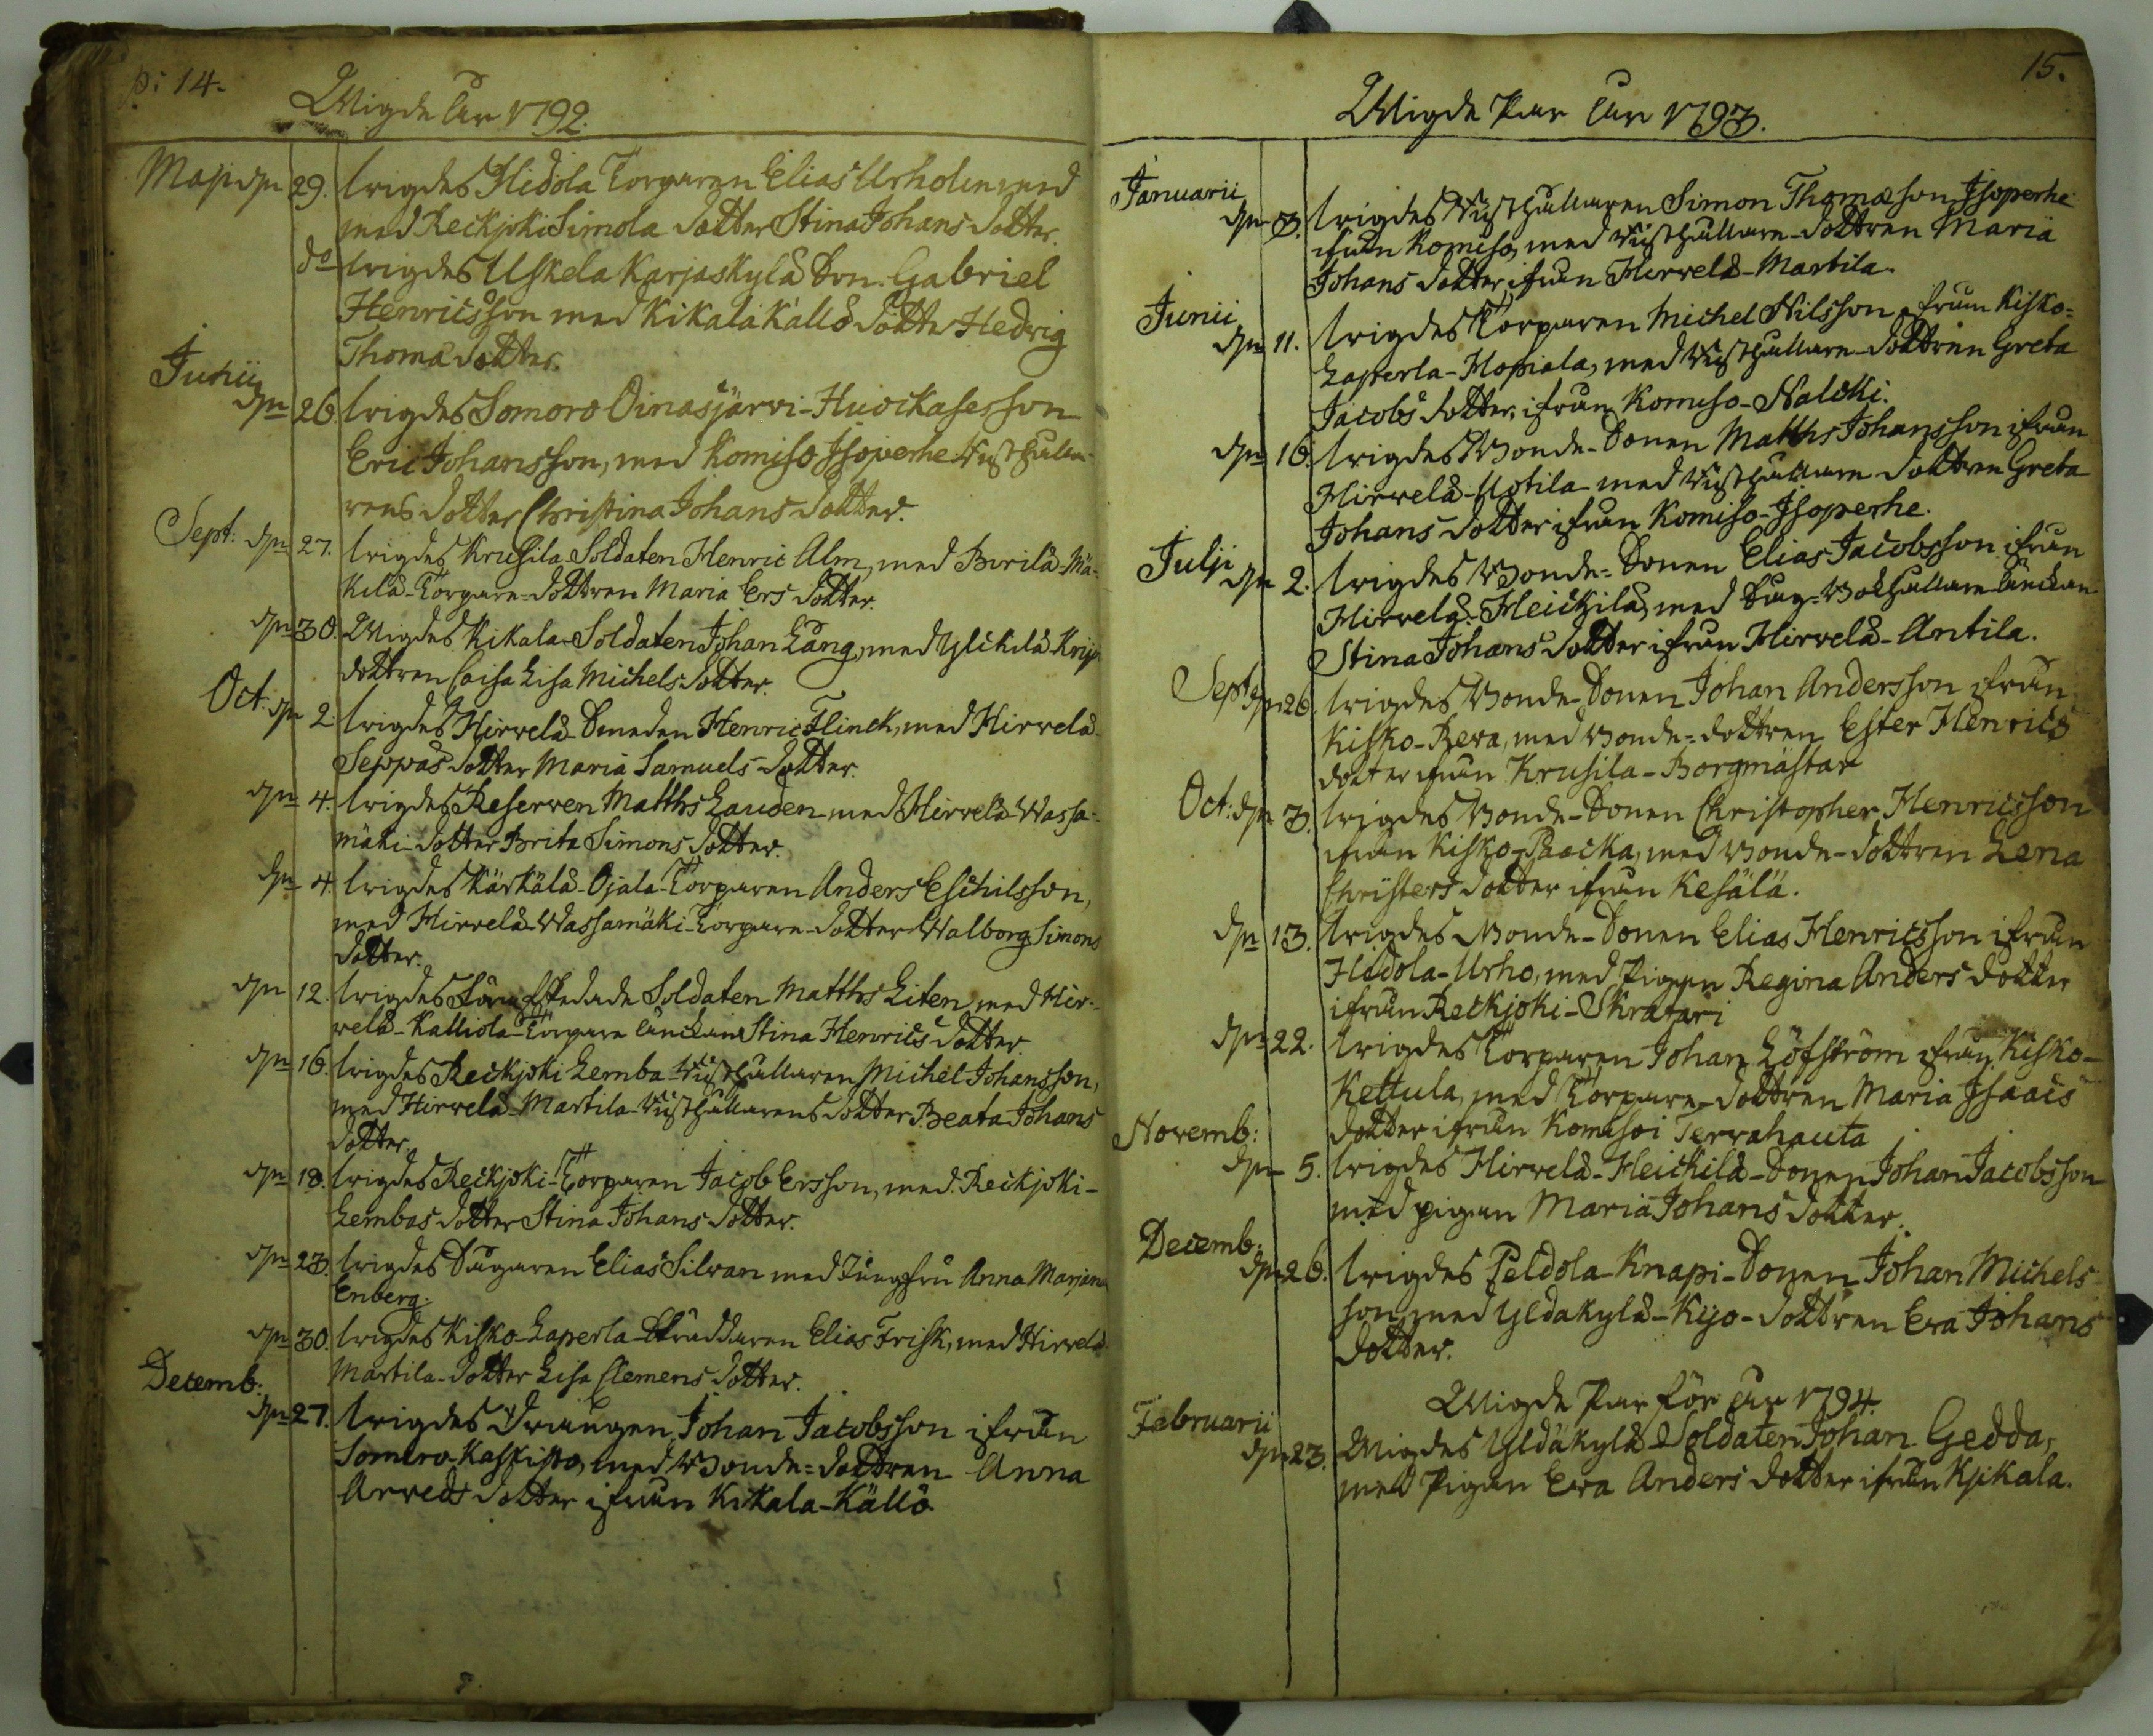 p: 14.
Wigde år 1792.
Maji den 29. wigdes Hidola Torparen Elias Urholin med
med Reckjoki Simola dotter Stina Johans dotter.
do wigdes Uskela Karjaskylä Son. Gabriel
Henricsson med Kikala Källö dotter Hedvig
Thomædotter.
Junii
den 26. wigdes Somoro Oinasjärvi-Huockasesson
Eric Johansson, med Komiso Isoperhe Rusthålla-
rens dotter Christina Johans dotter.
Sept: den 27. wigdes Krusila Soldaten Henric Alm, med Borilä-Mä-
kilä-Torpare-dottren Maria Ers dotter.
den 30. Wigdes Kikala Soldaten Johan Lång, med Yltkilä
dottren Caisa Lisa Michels dotter.
Oct. den 2. wigdes Hirvelä-Smeden Henric Flinck, med Hirvelä-
Seppäs dotter Maria Samuels-dotter.
den 4. wigdes Reserven Matths Lauden med Hirvelä Wassa-
mäki-dotter Brita Simons dotter.
den 4. wigdes Kärkälä-Ojala-Torparen Anders Eschilsson,
med Hirvelä-Wassamäki-Torpare-dotter Walborg Simons
dotter.
den 12. wigdes Soldaten Matths Liten, med Hir-
velä-Kalliola-Torpare änckan Stina Henrics dotter.
den 16. wigdes Reckjoki Lemba-Rusthållaren Michel Johansson,
med Hirvelä-Martila-Rusthållarens dotter Beata Johans
dotter.
den 18. wigdes Reckjoki-Torparen Jacob Ersson, med Reckjoki-
Lembas dotter Stina Johans dotter.
den 23. wigdes Sågaren Elias Silvan med Jungfru Anna Marjana
Enberg.
den 30. wigdes Kisko-Laperla-Skräddaren Elias Frisk, med Hirvelä
Martila-dotter Lisa Clemens dotter.
Decemb:
den 27. wigdes Drängen Johan Jacobsson ifrån
Somero-Kaskisto, med Bonde-dottren Anna
Arveds dotter ifrån Kikala-Källö.
15.
Wigde Par år 1793.
Januarii
den 3. wigdes Rusthållaren Simon Thomæson Isoperhe
ifrån Komiso, med Rusthållare-dottren Maria
Johans dotter ifrån Hirvelä-Martila.
Junii
den 11. wigdes Torparen Michel Nilsson, ifrån Kisko-
Laperla-Hopiala, med Rusthållare-dottren Greta
Jacobs dotter, ifrån Komiso-Nalcki.
den 16. wigdes Bonde-Sonen Matths Johansson ifrån
Hirvelä-Uotila med Rusthållare dottren Greta
Johans-dotter ifrån Komiso-Isoperhe.
Julji
den 2. wigdes Bonde-Sonen Elias Jacobsson ifrån
Hirvelä-Heickilä, med änckan
Stina Johans dotter ifrån Hirvelä-Antila.
Sept den 26. wigdes Bonde-Sonen Johan Andersson ifrån
Kisko-Reva, med Bonde-dottren Ester Henrics
dotter ifrån Krusila-Borgmästar
Oct: den 3. wigdes Bonde-Sonen Christopher Henricsson
ifrån Kisko-Paacka, med Bonde-dottren Lena
Christers dotter ifrån Kesälä.
den 13. wigdes Bonde-Sonen Elias Henricsson ifrån
Hidola-Urho, med Pigan Regina Anders dotter
ifrån Reckjoki-Skratari
den 22. wigdes Torparen Johan Löfström ifrån Kisko-
Kettula, med Torpare-dottren Maria Isaacs
dotter ifrån Komisoi Terrahauta
Novemb:
den 5. wigdes Hirvelä-Heickilä-Sonen Johan Jacobsson
med pigan Maria Johans dotter.
Decemb:
den 26. wigdes Peldola-Knapi-Sonen Johan Michels-
son, med Yldakylä-Kijo-dottren Eva Johans
dotter.
Wigde Par för år 1794.
Februarii
den 23. Wigdes Yldäkylä Soldaten Johan Gedda,
med Pigan Eva Anders dotter ifrån Kjikala.